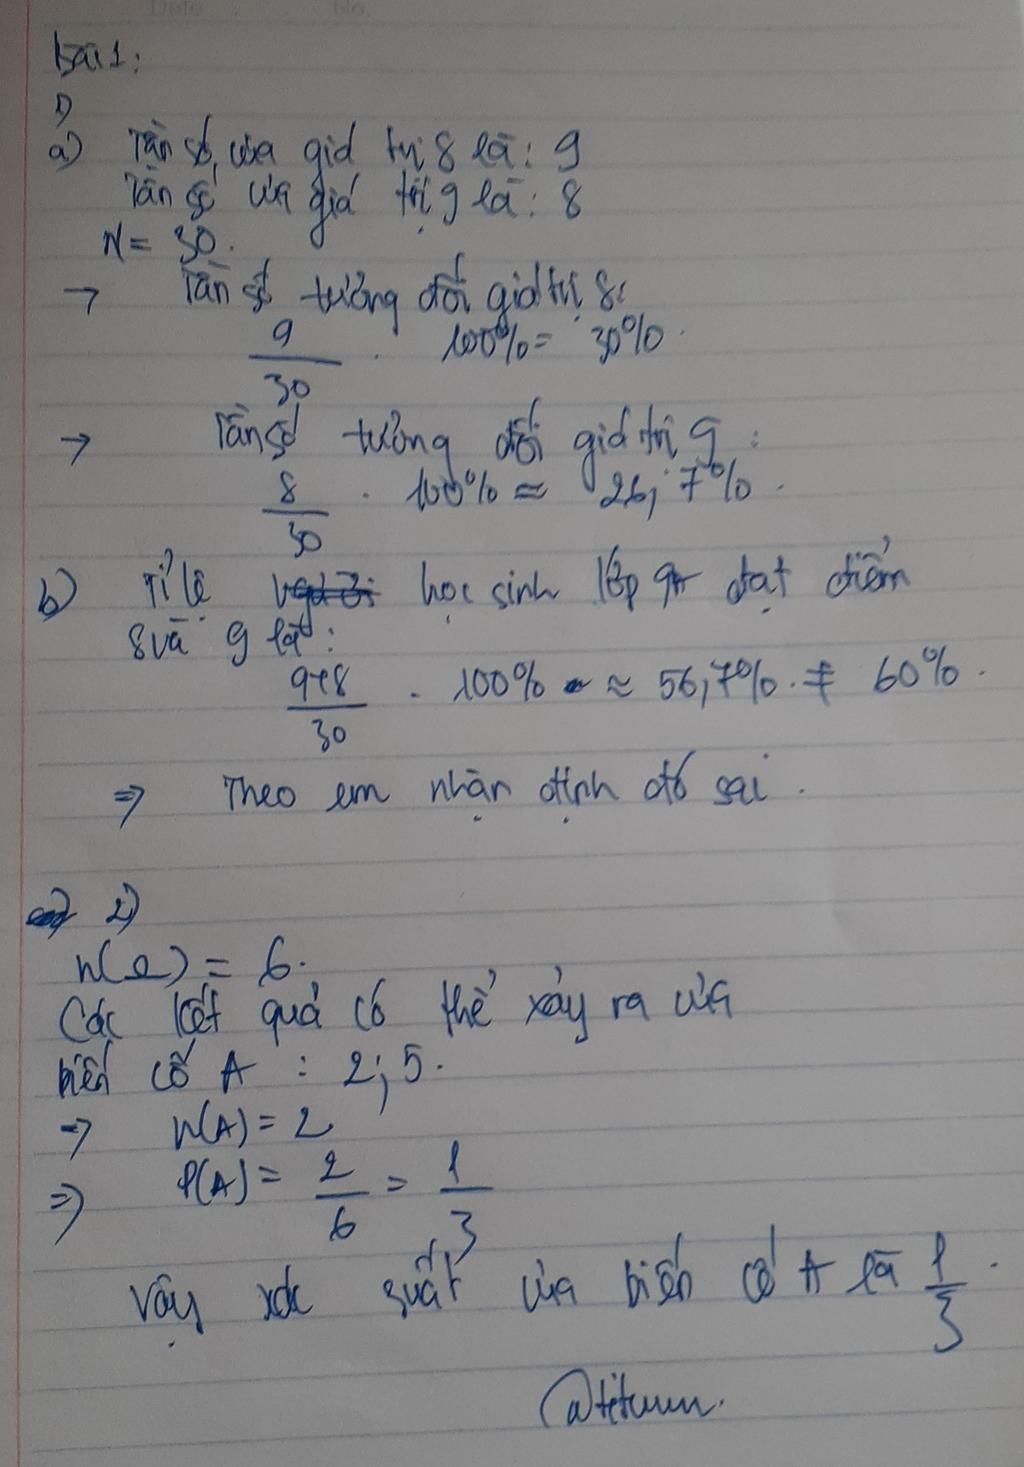 Date No.
Bài 1:
1)
a) Tần số của giá trị 8 là: 9
Tần số của giá trị 9 là: 8
N = 30.
→ Tần số tương đối giá trị 8:
9/30 . 100% = 30%.
→ Tần số tương đối giá trị 9:
8/30 . 100% ≈ 26,7%.
b) Tỉ lệ học sinh lớp 9A đạt điểm
8 và 9 là:
9+8/30 . 100% ≈ 56,7% ≠ 60%.
⇒ Theo em nhận định đó sai.
2)
n(Ω) = 6.
Các kết quả có thể xảy ra của
biến cố A : 2; 5.
⇒ n(A) = 2
⇒ P(A) = 2/6 = 1/3
Vậy xác suất của biến cố A là 1/3.